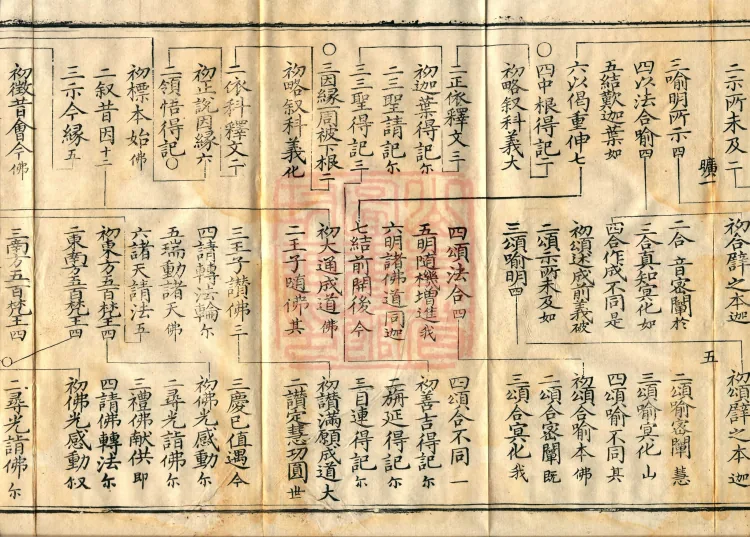 二示所未及二
三喻明所示四
四以法合喻四
五結歎迦葉如
六以偈重伸七
四中根得記二
初略叙科義大
二正依釋文三
初迦葉得記尒
二三聖請記尒
三三聖得記三
三因縁周被下根二
初略叙科義化
二依科釋文二
初正説因縁六
二領悟得記〇
初標本始佛
二叙昔因十二
三示今縁五
初徵昔會今佛
曠一
初合譬之本迦
二合音密闡於
三合真知冥化如
四合作成不同是
初頌述成前義破
二頌示所未及如
三頌喻明四
四頌法合四
五明随機増進我
六明諸佛道同迦
七結前開後今
初大通成道佛
二王子随佛其
三王子讃佛三
四請轉法輪尒
五瑞動諸天佛
六諸天請法五
初東方五百梵王四
二東南方五百梵王四
三南方五百梵王四
五
初頌譬之本迦
二頌喻密闡慧
三頌喻冥化山
四頌喻不同其
初頌合喻本佛
二頌合密闡既
三頌合冥化我
四頌合不同一
初善吉得記尒
二旃延得記尒
三目連得記尒
初讃滿願成道大
二讃定慧功圓世
三慶已值遇今
初佛光感動尒
二尋光詣佛尒
三禮佛献供即
四請佛轉法尒
初佛光感動奴
二尋光詣佛尒